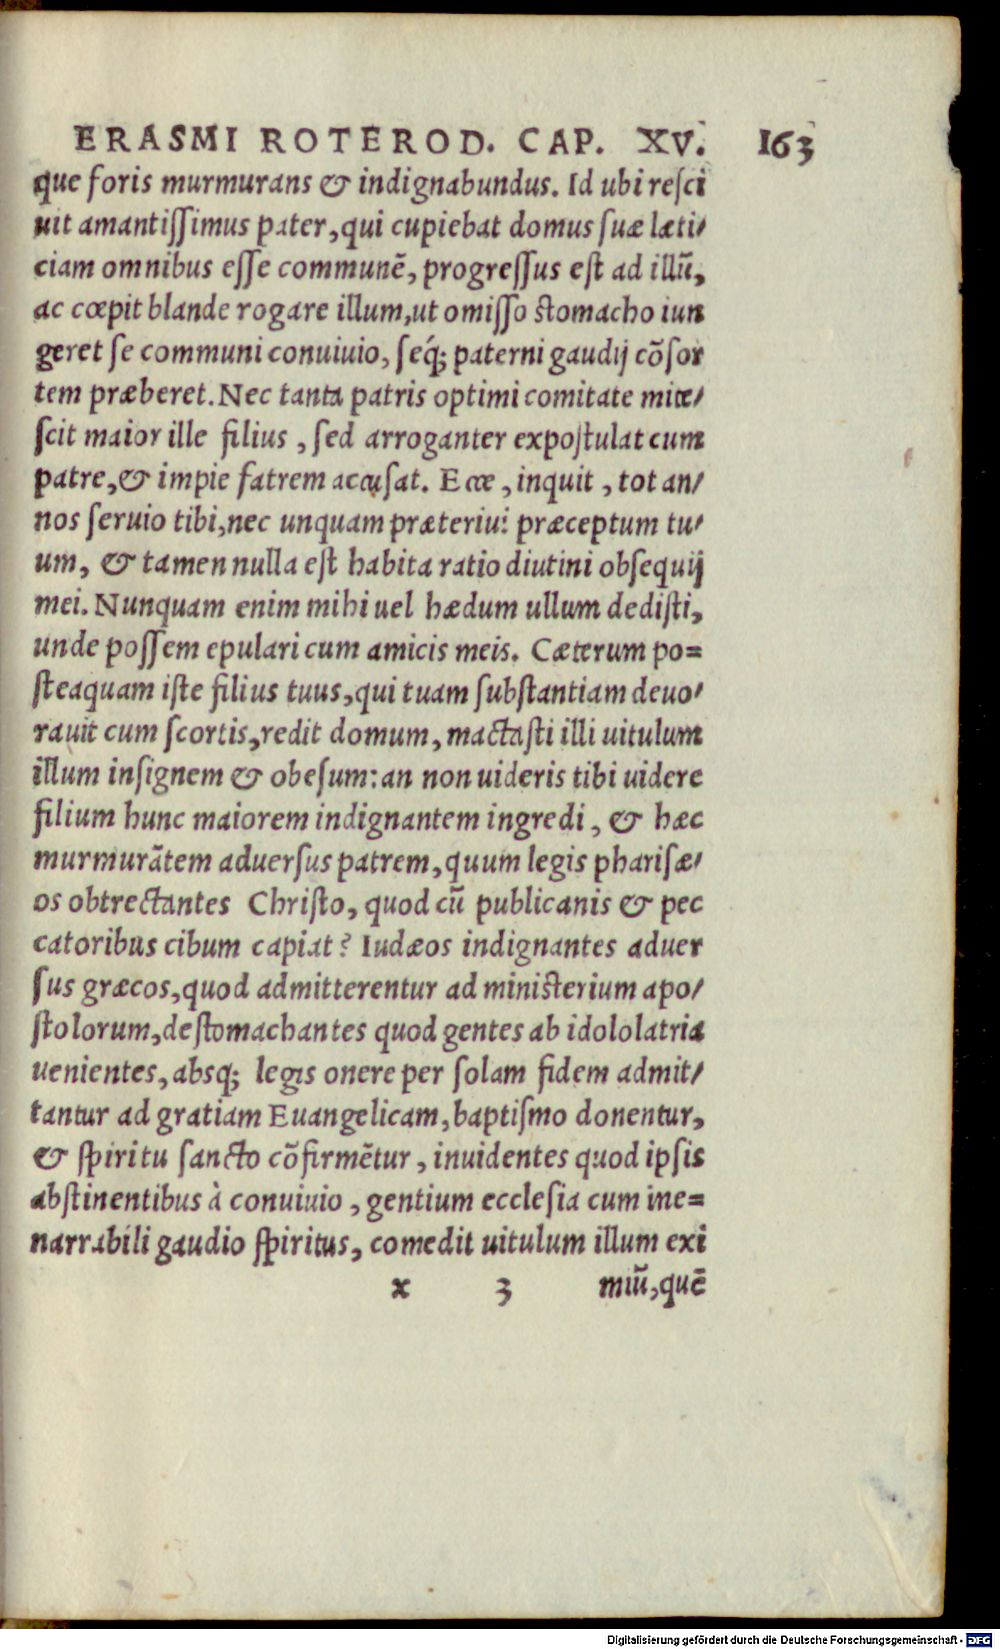 ERASMI ROTEROD. CAP. XV. 163
que foris murmurans & indignabundus. Id ubi reſci
uit amantiſſimus pater, qui cupiebat domus ſuæ læti/
ciam omnibus eſſe communē, progreſſus eſt ad illū,
ac cœpit blande rogare illum, ut omiſſo ſtomacho iun
geret ſe communi conuiuio, ſéq; paterni gaudij cōſor
tem præberet. Nec tanta patris optimi comitate mite/
ſcit maior ille filius, ſed arroganter expoſtulat cum
patre, & impie fatrem accuſat. Ecce, inquit, tot an/
nos ſeruio tibi, nec unquam præteriui præceptum tu/
um, & tamen nulla eſt habita ratio diutini obſequij
mei. Nunquam enim mihi uel hædum ullum dediſti,
unde poſſem epulari cum amicis meis. Cæterum po=
ſteaquam iſte filius tuus, qui tuam ſubſtantiam deuo/
rauit cum ſcortis, redit domum, mactaſti illi uitulum
illum inſignem & obeſum: an non uideris tibi uidere
filium hunc maiorem indignantem ingredi, & hæc
murmurātem aduerſus patrem, quum legis phariſæ/
os obtrectantes Chriſto, quod cū publicanis & pec
catoribus cibum capiat? Iudæos indignantes aduer
ſus græcos, quod admitterentur ad miniſterium apo/
ſtolorum, deſtomachantes quod gentes ab idololatria
uenientes, absq; legis onere per ſolam fidem admit/
tantur ad gratiam Euangelicam, baptiſmo donentur,
& ſpiritu ſancto cōfirmētur, inuidentes quod ipſis
abſtinentibus à conuiuio, gentium eccleſia cum ine=
narrabili gaudio ſpiritus, comedit uitulum illum exi
x 3 miū, quē
Digitalisierung gefördert durch die Deutsche Forschungsgemeinschaft - DFG